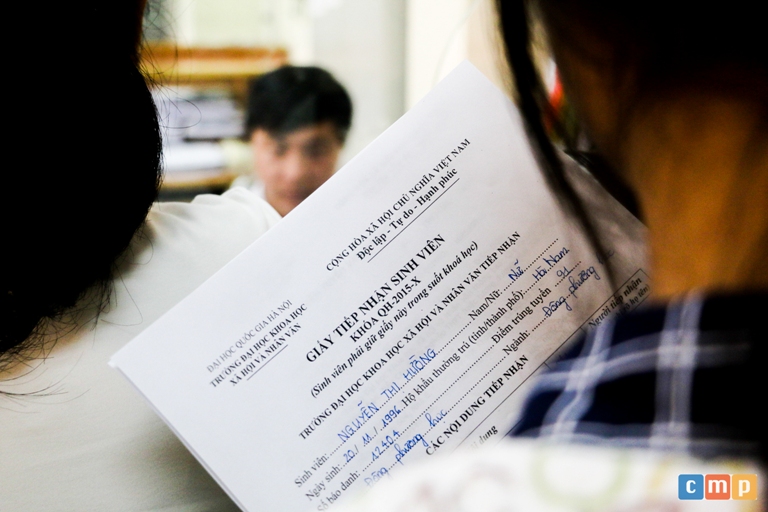 ĐẠI HỌC QUỐC GIA HÀ NỘI
TRƯỜNG ĐẠI HỌC KHOA HỌC
XÃ HỘI VÀ NHÂN VĂN
CỘNG HÒA XÃ HỘI CHỦ NGHĨA VIỆT NAM
Độc lập - Tự do - Hạnh phúc
GIẤY TIẾP NHẬN SINH VIÊN
KHÓA QH-2015-X
(Sinh viên phải giữ giấy này trong suốt khoá học)
TRƯỜNG ĐẠI HỌC KHOA HỌC XÃ HỘI VÀ NHÂN VĂN TIẾP NHẬN
Sinh viên: NGUYỄN THỊ HƯỜNG Nam/Nữ: Nữ
Ngày sinh: 20/11/1996 Hộ khẩu thường trú (tỉnh/thành phố): Hà Nam
Số báo danh: 12404 Điểm trúng tuyển: 91
Đông phương học Ngành: Đông phương học
CÁC NỘI DUNG TIẾP NHẬN
Người tiếp nhận
dung
cmp